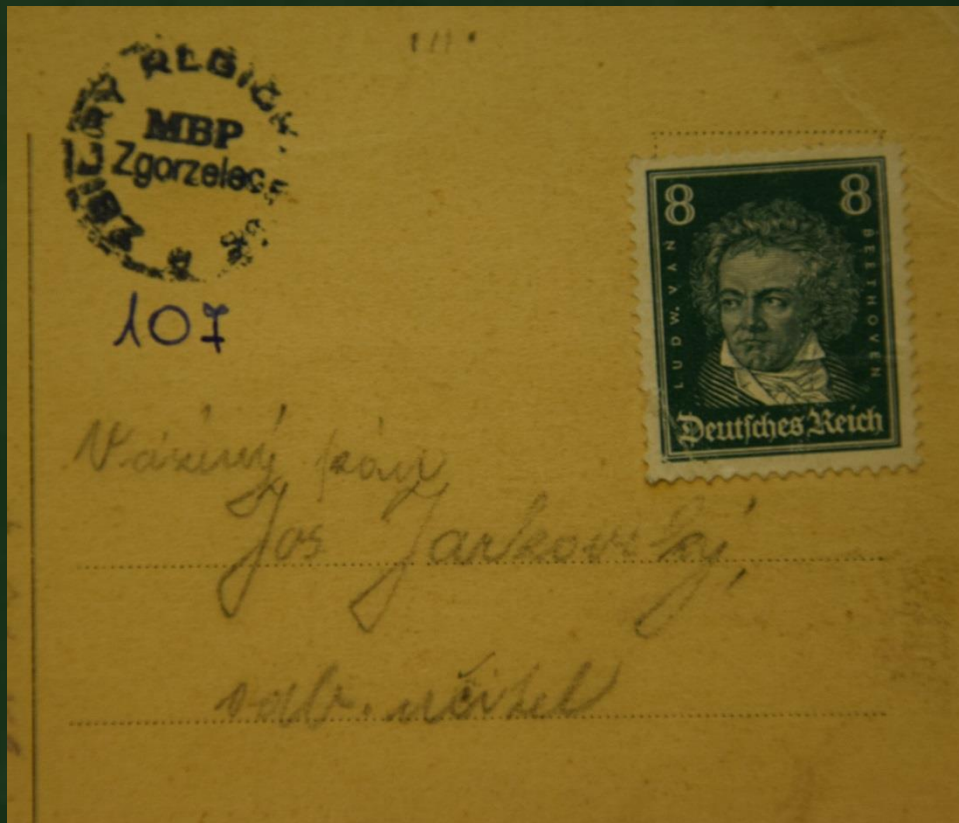 ZBIORY
MBP
Zgorzelec
107
8 8
LUDW. VAN BEETHOVEN
Deutsches Reich
Vážený pán
Jos Jarkovský,
odb. učitel